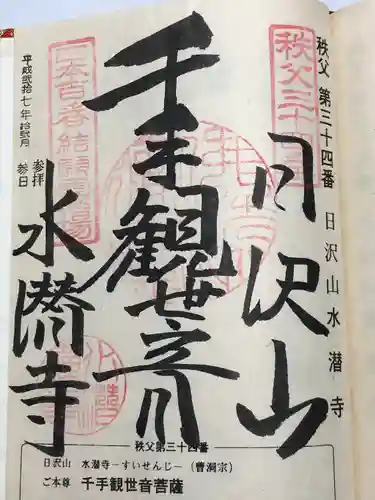 秩父 第三十四番 日沢山水潜寺
秩父三十四
日沢山
千手観世音
日本百番結願霊場
水潜寺
平成弐拾七年拾弐月
参拝
参日
秩父第三十四番
日沢山 水潜寺－すいせんじ－（曹洞宗）
ご本尊 千手観世音菩薩